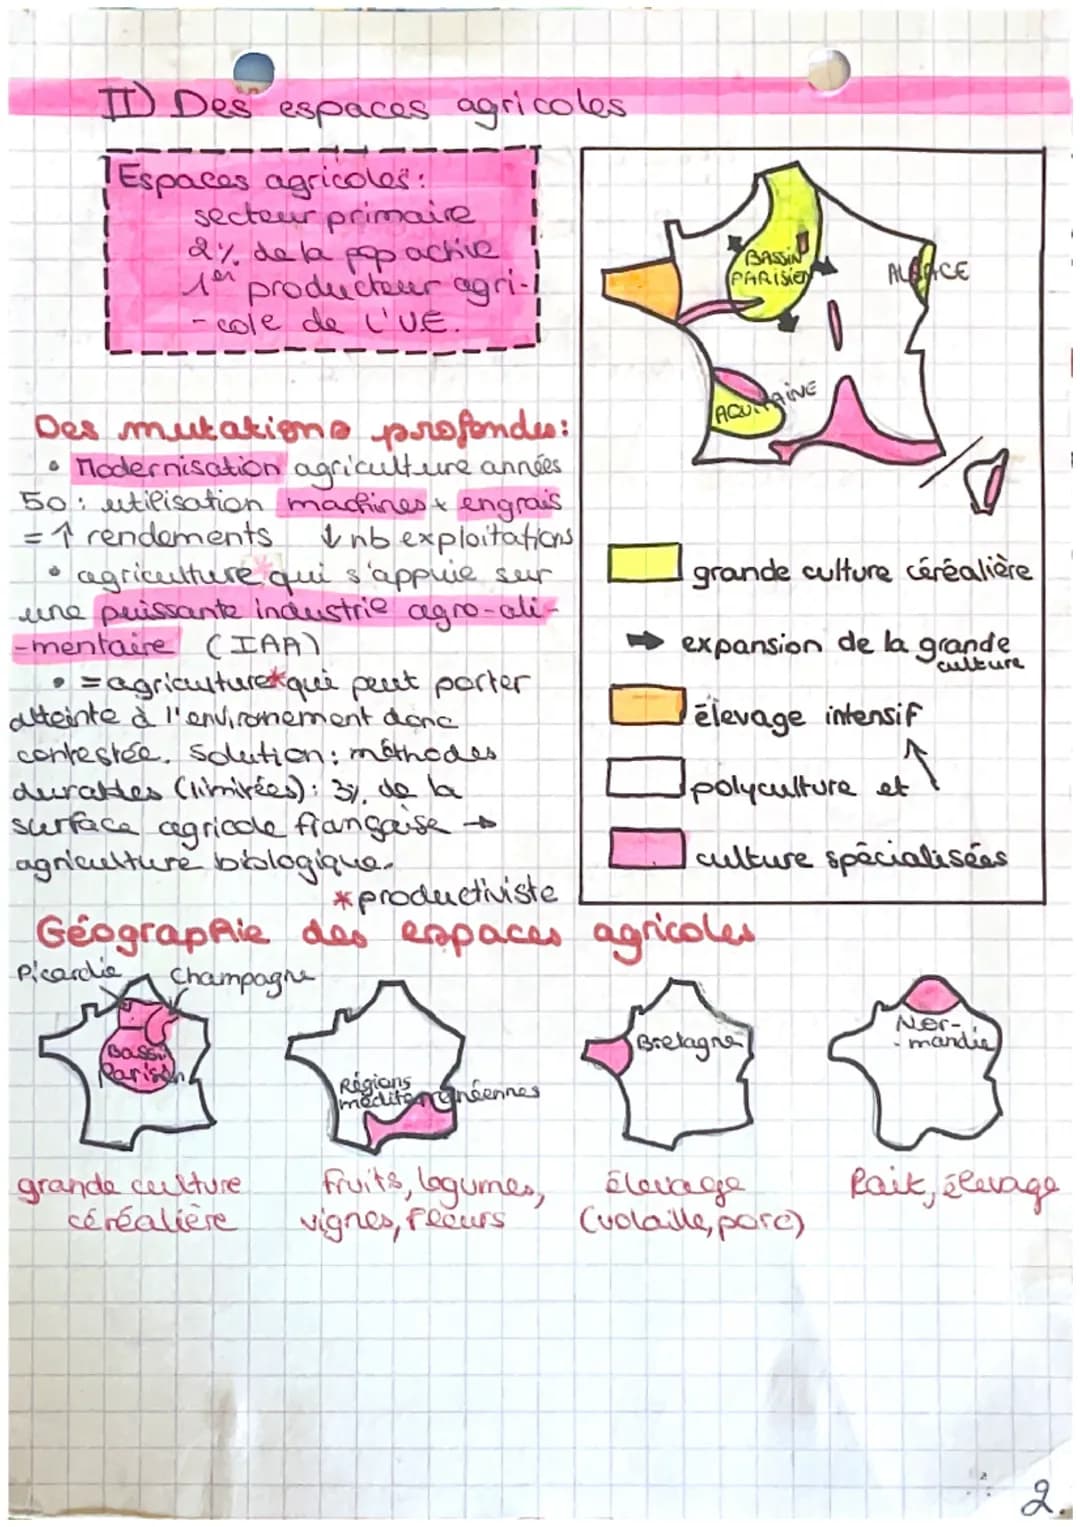 II) Des espaces agricoles
Espaces agricoles:
secteur primaire
2% de la pop active
1er producteur agri-
-cole de l'UE.
BASSIN
PARISIEN
ALSACE
AQUITAINE
grande culture céréalière
→ expansion de la grande
culture
élevage intensif
polyculture et ↑
culture spécialisées
Des mutations profondes:
• Modernisation agriculture années
50: utilisation machines + engrais
= ↑ rendements ↓ nb exploitations
• agriculture* qui s'appuie sur
une puissante industrie agro-ali-
-mentaire (IAA)
• = agriculture* qui peut porter
atteinte à l'environement donc
contestée. Solution: méthodes
durables (limitées): 3% de la
surface agricole française →
agriculture biologique.
* productiviste
Géographie des espaces agricoles
Picardie Champagne
Bassin
Parisien
Régions
méditerranéennes
Bretagne
Nor-
-mandie
grande culture
céréalière
fruits, légumes,
vignes, fleurs
élevage
(volaille, porc)
lait, élevage
2